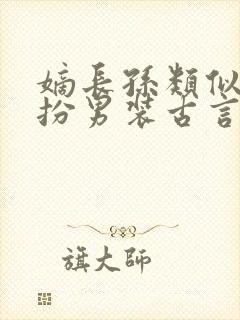 嫡長孫類似
扮男裝古言
旗大師